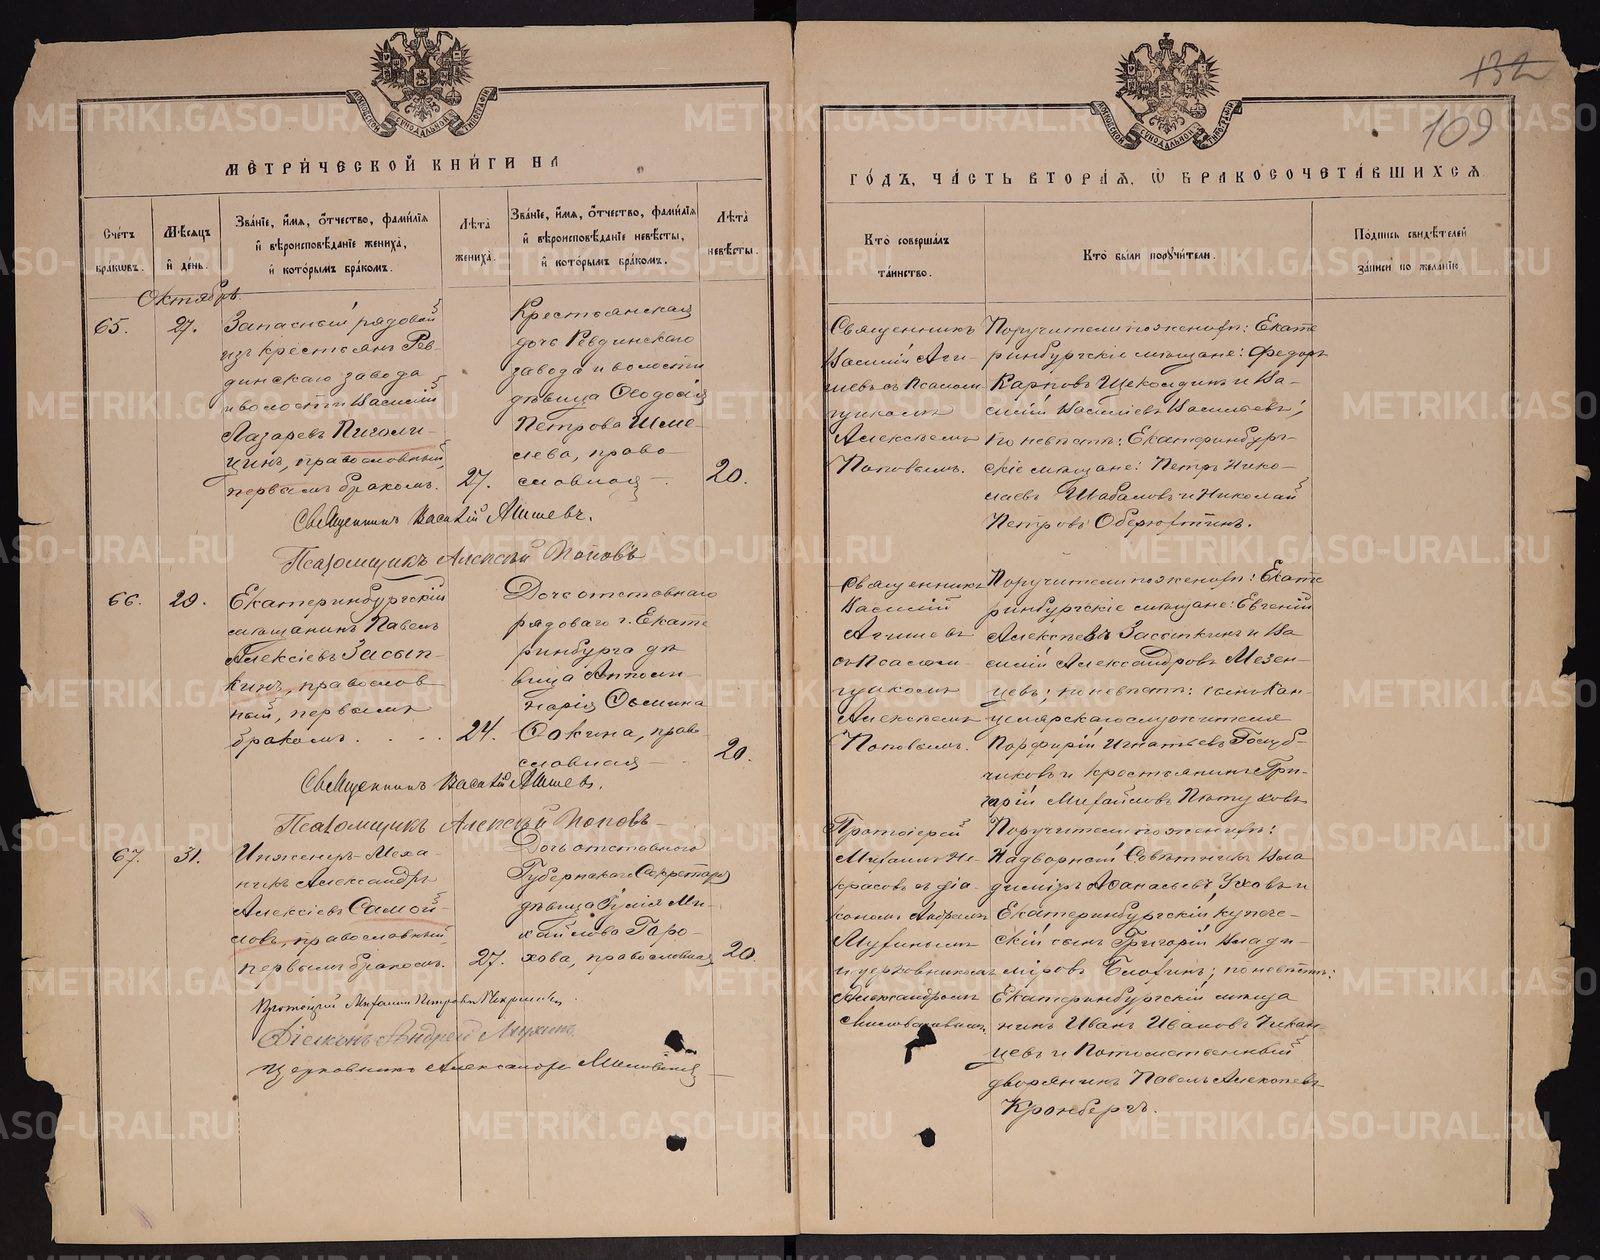 МЕТРИ́ЧЕСКОЙ КНИ́ГИ НА
Сче́тъ бра́кѡвъ.
Мѣ́сяцъ и҆ де́нь.
Зва́нїе, и҆́мѧ, ѻ҆́тчество, фами́лїѧ и҆ вѣроисповѣ́данїе жениха̀, и҆ кото́рымъ бра́комъ.
Лѣ́та жениха̀.
Зва́нїе, и҆́мѧ, ѻ҆́тчество, фами́лїѧ и҆ вѣроисповѣ́данїе невѣ́сты, и҆ кото́рымъ бра́комъ.
Лѣ́та невѣ́сты.
Октябрь.
65.
27.
Запасный рядовой
изъ крестьянъ Рев-
динскаго завода
и волости Василій
Лазаревъ
православный,
первымъ бракомъ.
27.
Крестьянская
дочь Ревдинскаго
завода и волости
дѣвица Ѳеодосія
Петрова Шме-
лева, право-
славная
20.
Священникъ Василій Агишевъ.
Псаломщикъ Алексѣй Поповъ
66.
29.
Екатеринбургскій
мѣщанинъ Павелъ
Алексіевъ Засып-
кинъ, православ
ный, первымъ
бракомъ
24.
Дочь отставнаго
рядоваго г. Екате
ринбурга дѣ
вица Аполи-
нарія
Ѳокина, право
славная
20.
Священникъ Василій Агишевъ.
Псаломщикъ Алексѣй Поповъ
67.
31.
Инженеръ-Меха-
никъ Александръ
Алексіевъ Самой-
ловъ, православный,
первымъ бракомъ.
27.
Дочь отставнаго
Губернскаго Секретаря
дѣвица Юлія Ми-
хайлова Горо-
хова, православная
20.
Протоіерей Михаилъ Петровъ Некрасовъ
Діаконъ Андрей Мухинъ
Церковникъ Александръ Милославинъ
132
109
ГО́ДЪ, ЧА́СТЬ ВТОРА́Ѧ, Ѽ БРАКОСОЧЕТА́ВШИХСѦ
Кто̀ соверша́лъ та́инство.
Кто̀ бы́ли порꙋчи́тели.
По́дпись свидѣ́телей за́писи по жела́нїю
Священникъ
Василій Аги-
шевъ съ псалом-
щикомъ
Алексѣемъ
Поповымъ.
Поручители по женихѣ: Екате
ринбургскіе мѣщане: Федоръ
Карповъ Щеколдинъ и Ва-
силій Василіевъ Васильевъ;
по невѣстѣ: Екатеринбург-
скіе мѣщане: Петръ Нико-
лаевъ Шабаловъ и Николай
Петровъ Оберюхтинъ.
Священникъ
Василій
Агишевъ
съ псалом-
щикомъ
Алексѣемъ
Поповымъ.
Поручители по женихѣ: Екате
ринбургскіе мѣщане: Евгеній
Алексѣевъ Засыпкинъ и Ва
силій Александровъ Мезен-
цевъ; по невѣстѣ: сынъ кан-
целярскаго служителя
Порфирій Игнатьевъ Голуб-
чиковъ и крестьянинъ Гри-
горій Михайловъ Пѣтуховъ
Протоіерей
Михаилъ Не-
красовъ съ діа-
кономъ Андреемъ
Мухинымъ
и церковникомъ
Александромъ
Поручители по женихѣ:
Надворный Совѣтникъ Вла
димиръ Аѳанасьевъ Уховъ и
Екатеринбургскій купече-
скій сынъ Григорій Влади-
міровъ Блохинъ; по невѣстѣ:
Екатеринбургскій мѣща
нинъ Иванъ Ивановъ Чекан-
цевъ и Потомственный
дворянинъ Павелъ Алексѣевъ
Кронбергъ.